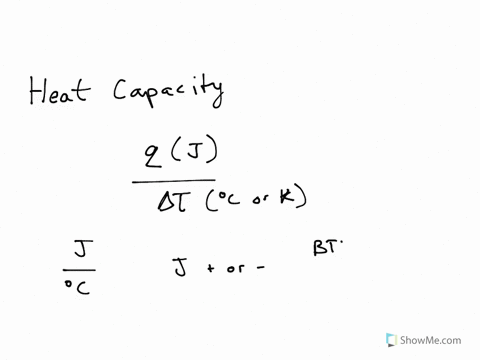 Heat Capacity
q (J)
ΔT (°C or K)
J
°C
J + or -
BT.
ShowMe.com